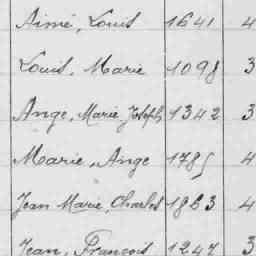 Aimé, Louis 1641 4
Louis, Marie 1098 3
Ange, Marie, Joseph 1342 3
Marie, Ange 1785 4
Jean Marie, Charles 1863 4
Jean, François 1247 3